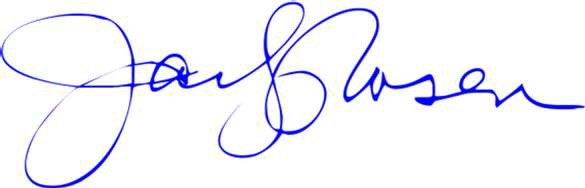 Jay Rosen